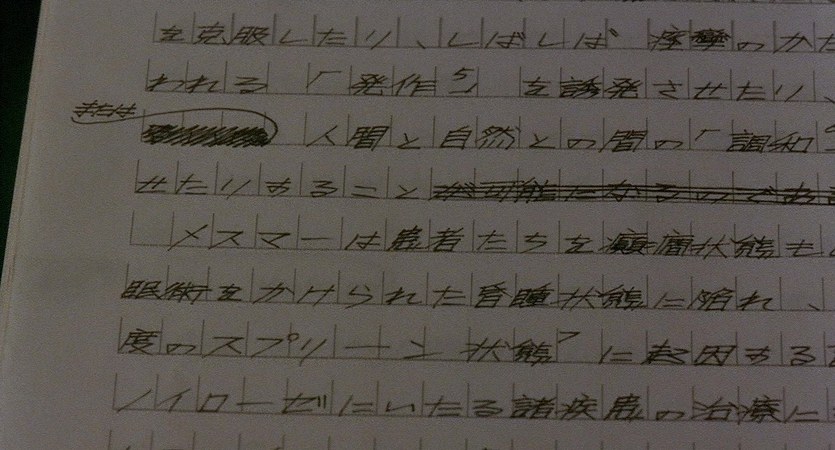 を克服したり、しばしば痙攣のかた
われる「発作」を誘発させたり、
または
人間と自然との間の「調和」
せたりすることが可能になるのであ
メスマーは患者たちを癲癇状態も
眠術をかけられた昏睡状態に陥れ、
度のスプリーン状態」に起因する
ノイローゼにいたる諸疾患の治療に